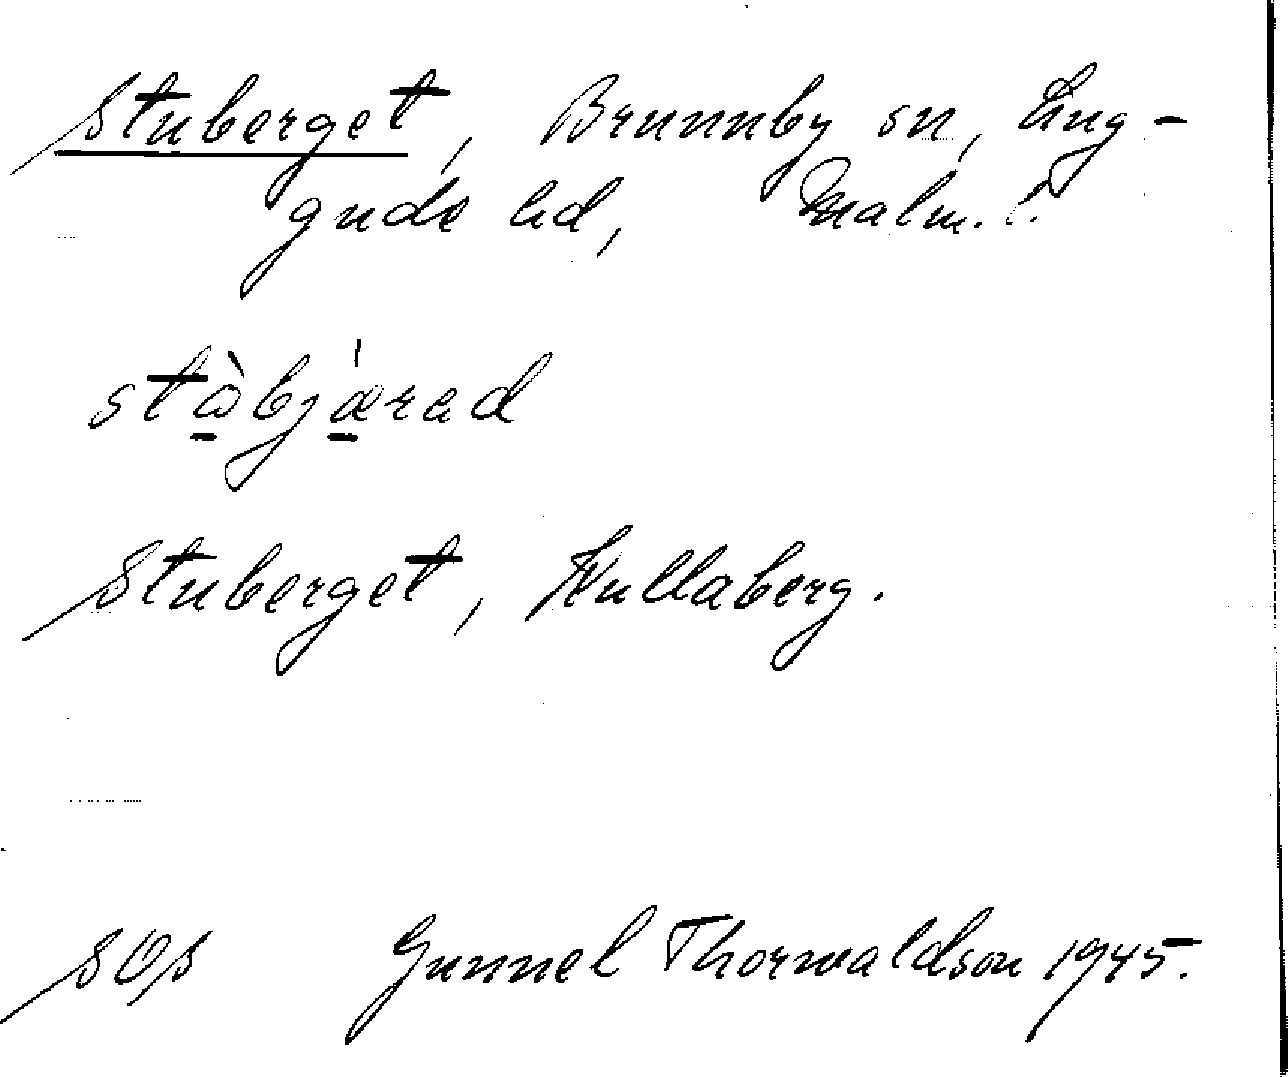 Stuberget, Brunnby sn, Lug-
gude hd, Malm. l.
stὼbjæ̀rad
Stuberget, Kullaberg.
SOS Gunnel Thorwaldson 1945.